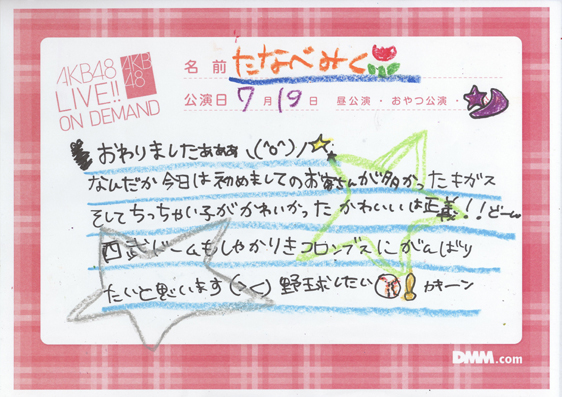 AKB48
LIVE!!
ON DEMAND
AKB
48
名前 たなべみく
公演日 7月19日 昼公演・おやつ公演・
おわりましたぁぁぁ ヽ(^o^)ノ
なんだか今日は初めましてのお客さんが多かったキガス
そしてちっちゃい子がかわいかった かわいいは正義!!どーん
西武ドームもしゃかりきコロンブスにがんばり
たいと思います(><) 野球したい! カキーン
DMM.com